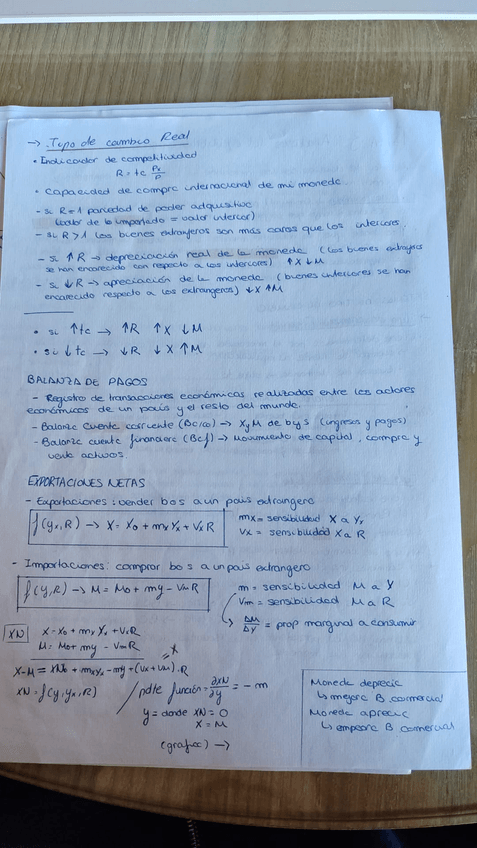 → Tipo de cambio Real
• Indicador de competitividad
R = tc Px/P
• Capacidad de compra internacional de mi moneda.
- si R=1 paridad de poder adquisitivo
(valor de lo importado = valor interior)
- si R>1 los bienes extranjeros son más caros que los interiores
- si ↑R → depreciación real de la moneda (los bienes extranjeros
se han encarecido con respecto a los interiores) ↑X ↓M
- si ↓R → apreciación de la moneda (bienes interiores se han
encarecido respecto a los extrangeros) ↓X ↑M
• si ↑tc → ↑R ↑X ↓M
• si ↓tc → ↓R ↓X ↑M
BALANZA DE PAGOS
- Registro de transacciones económicas realizadas entre los actores
económicos de un país y el resto del mundo.
- Balanza cuenta corriente (Bc/cc) → X y M de b y s (ingresos y pagos)
- Balanza cuenta financiera (Bcf) → Movimiento de capital, compra y
venta activos.
EXPORTACIONES NETAS
- Exportaciones: vender b o s a un país extrangero
f(Yx,R) → X = X0 + mxYx + VxR
mx = sensibilidad X a Yx
Vx = sensibilidad X a R
- Importaciones: comprar b o s a un país extrangero
f(Y,R) → M = M0 + my - VmR
m = sensibilidad M a Y
Vm = sensibilidad M a R
ΔM/ΔY = prop marginal a consumir
XN
X = X0 + mxYx + VxR
M = M0 + my - VmR
X-M = XN0 + mxYx - my + (Vx + Vm).R
XN = f(Y, Yx, R)
pdte función = ∂XN/∂y = - m
y = donde XN = 0
X = M
(grafico) →
Moneda deprecia
↳ mejora B comercial
Moneda aprecia
↳ empeora B comercial